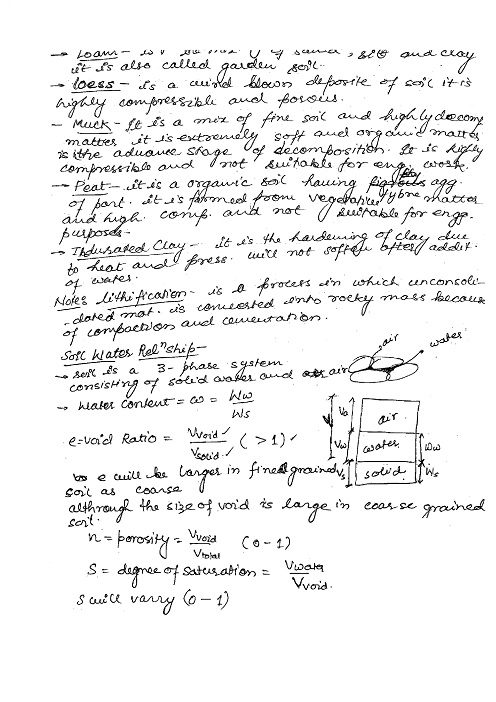 → Loam - is a mix of sand, silt and clay
it is also called garden soil.
→ loess - is a wind blown deposite of soil it is
highly compressible and porous.
- Muck - It is a mix of fine soil and highly decomp
matter it is extremely soft and organic matter
is the advance stage of decomposition. It is highly
compressible and not suitable for eng. work.
→ Peat - it is a organic soil having agg.
of part. it is formed from vegetative fibre matter
and high comp. and not suitable for engg.
purposes-
→ Indusated Clay - it is the hardening of clay due
to heat and press. will not soften after addit.
of water.
Notes lithification - is a process in which unconsoli-
-dated mat. is converted into rocky mass because
of compaction and cementation.
Soil Water Relⁿship -
→ soil is a 3-phase system
consisting of solid water and air
air
water
→ Water Content = ω = Ww / Ws
V
Va
air
e = void Ratio = Vvoid ✓ / Vsolid ✓ (>1) ✓
Vw
water
Ww
Vs
solid
Ws
e will be larger in fine grained
soil as coarse
althrough the size of void is large in coarse grained
soil.
n = porosity = Vvoid / Vtotal (0-1)
S = degree of saturation = Vwater / Vvoid.
S will varry (0-1)